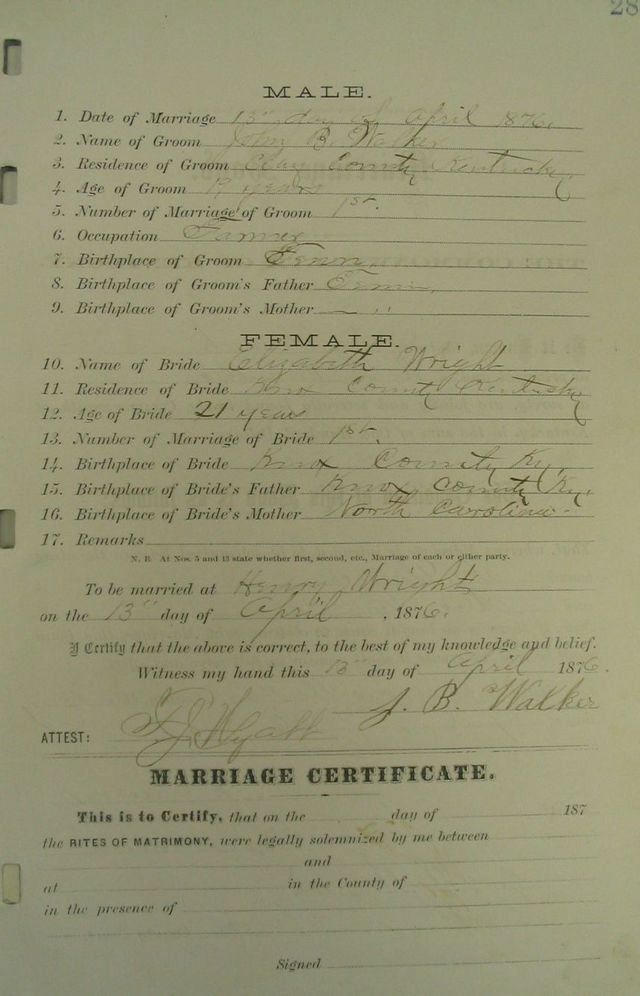 28
MALE.
1. Date of Marriage 13" day of April 1876.
2. Name of Groom John B Walker
3. Residence of Groom Clay County Kentucky
4. Age of Groom 19 years
5. Number of Marriage of Groom 1st.
6. Occupation Farmer
7. Birthplace of Groom Tenn
8. Birthplace of Groom's Father Tenn,
9. Birthplace of Groom's Mother — "
FEMALE.
10. Name of Bride Elizabeth Wright
11. Residence of Bride Knox County Kentucky
12. Age of Bride 21 years
13. Number of Marriage of Bride 1st.
14. Birthplace of Bride Knox County Ky,
15. Birthplace of Bride's Father Knox County Ky,
16. Birthplace of Bride's Mother North Carolina
17. Remarks
N. B. At Nos. 5 and 13 state whether first, second, etc., Marriage of each or either party.
To be married at Henry Wright
on the 13" day of April, 1876.
I Certify that the above is correct, to the best of my knowledge and belief.
Witness my hand this 13" day of April 1876.
J. B. Walker
ATTEST:
MARRIAGE CERTIFICATE.
This is to Certify, that on the day of 187
the RITES OF MATRIMONY, were legally solemnized by me between
and
at in the County of
in the presence of
Signed